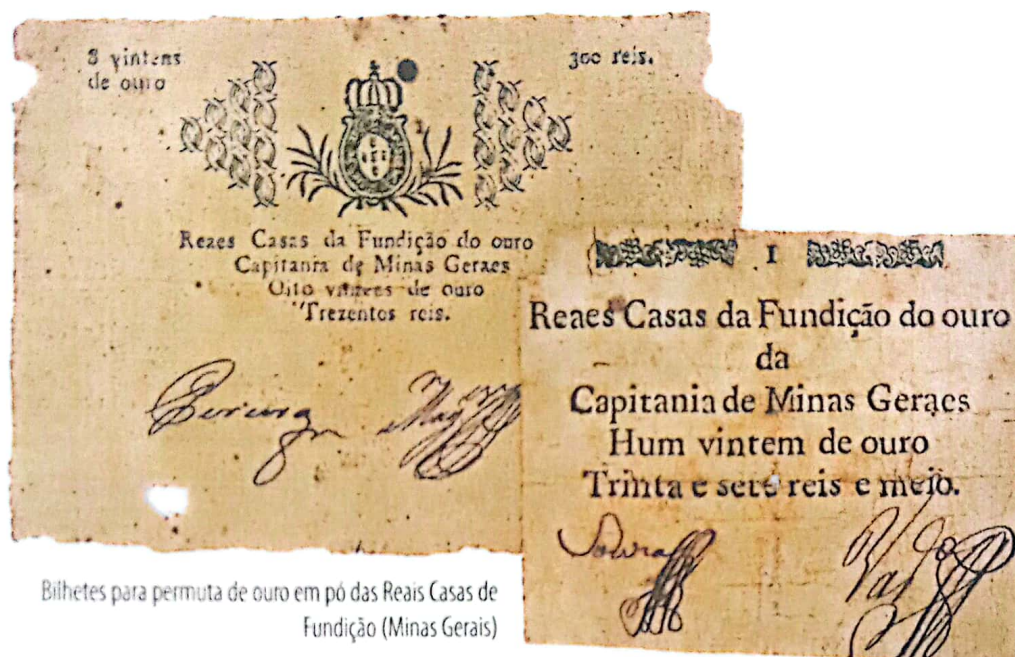 8 vintens
de ouro
300 reis.
Reaes Casas da Fundição do ouro
Capitania de Minas Geraes
Oito vintens de ouro
Trezentos reis.
I
Reaes Casas da Fundição do ouro
da
Capitania de Minas Geraes
Hum vintem de ouro
Trinta e sete reis e meio.
Bilhetes para permuta de ouro em pó das Reais Casas de
Fundição (Minas Gerais)